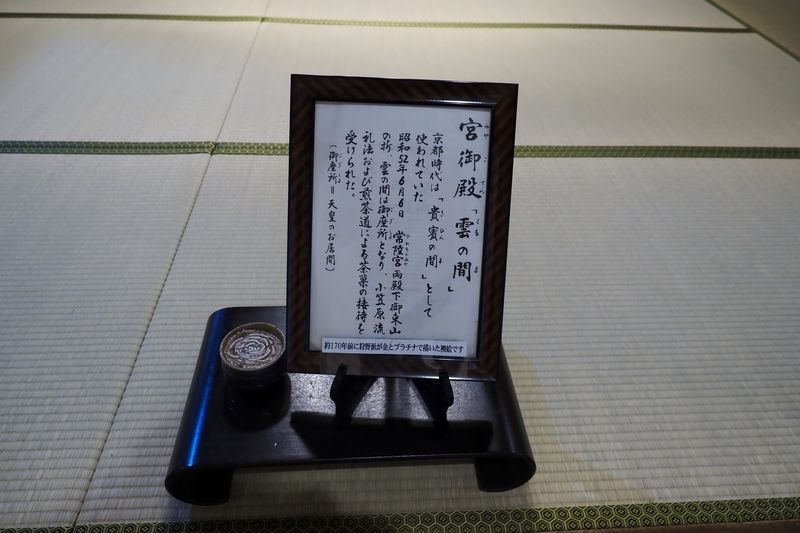 宮御殿「雲の間」
京都時代は「貴賓の間」として
使われていた
昭和52年6月6日 常陸宮両殿下御来山
の折 雲の間は御座所となり、小笠原流
礼法および煎茶道による茶菓の接待を
受けられた。
(御座所=天皇のお居間)
約170年前に狩野派が金とプラチナで描いた襖絵です